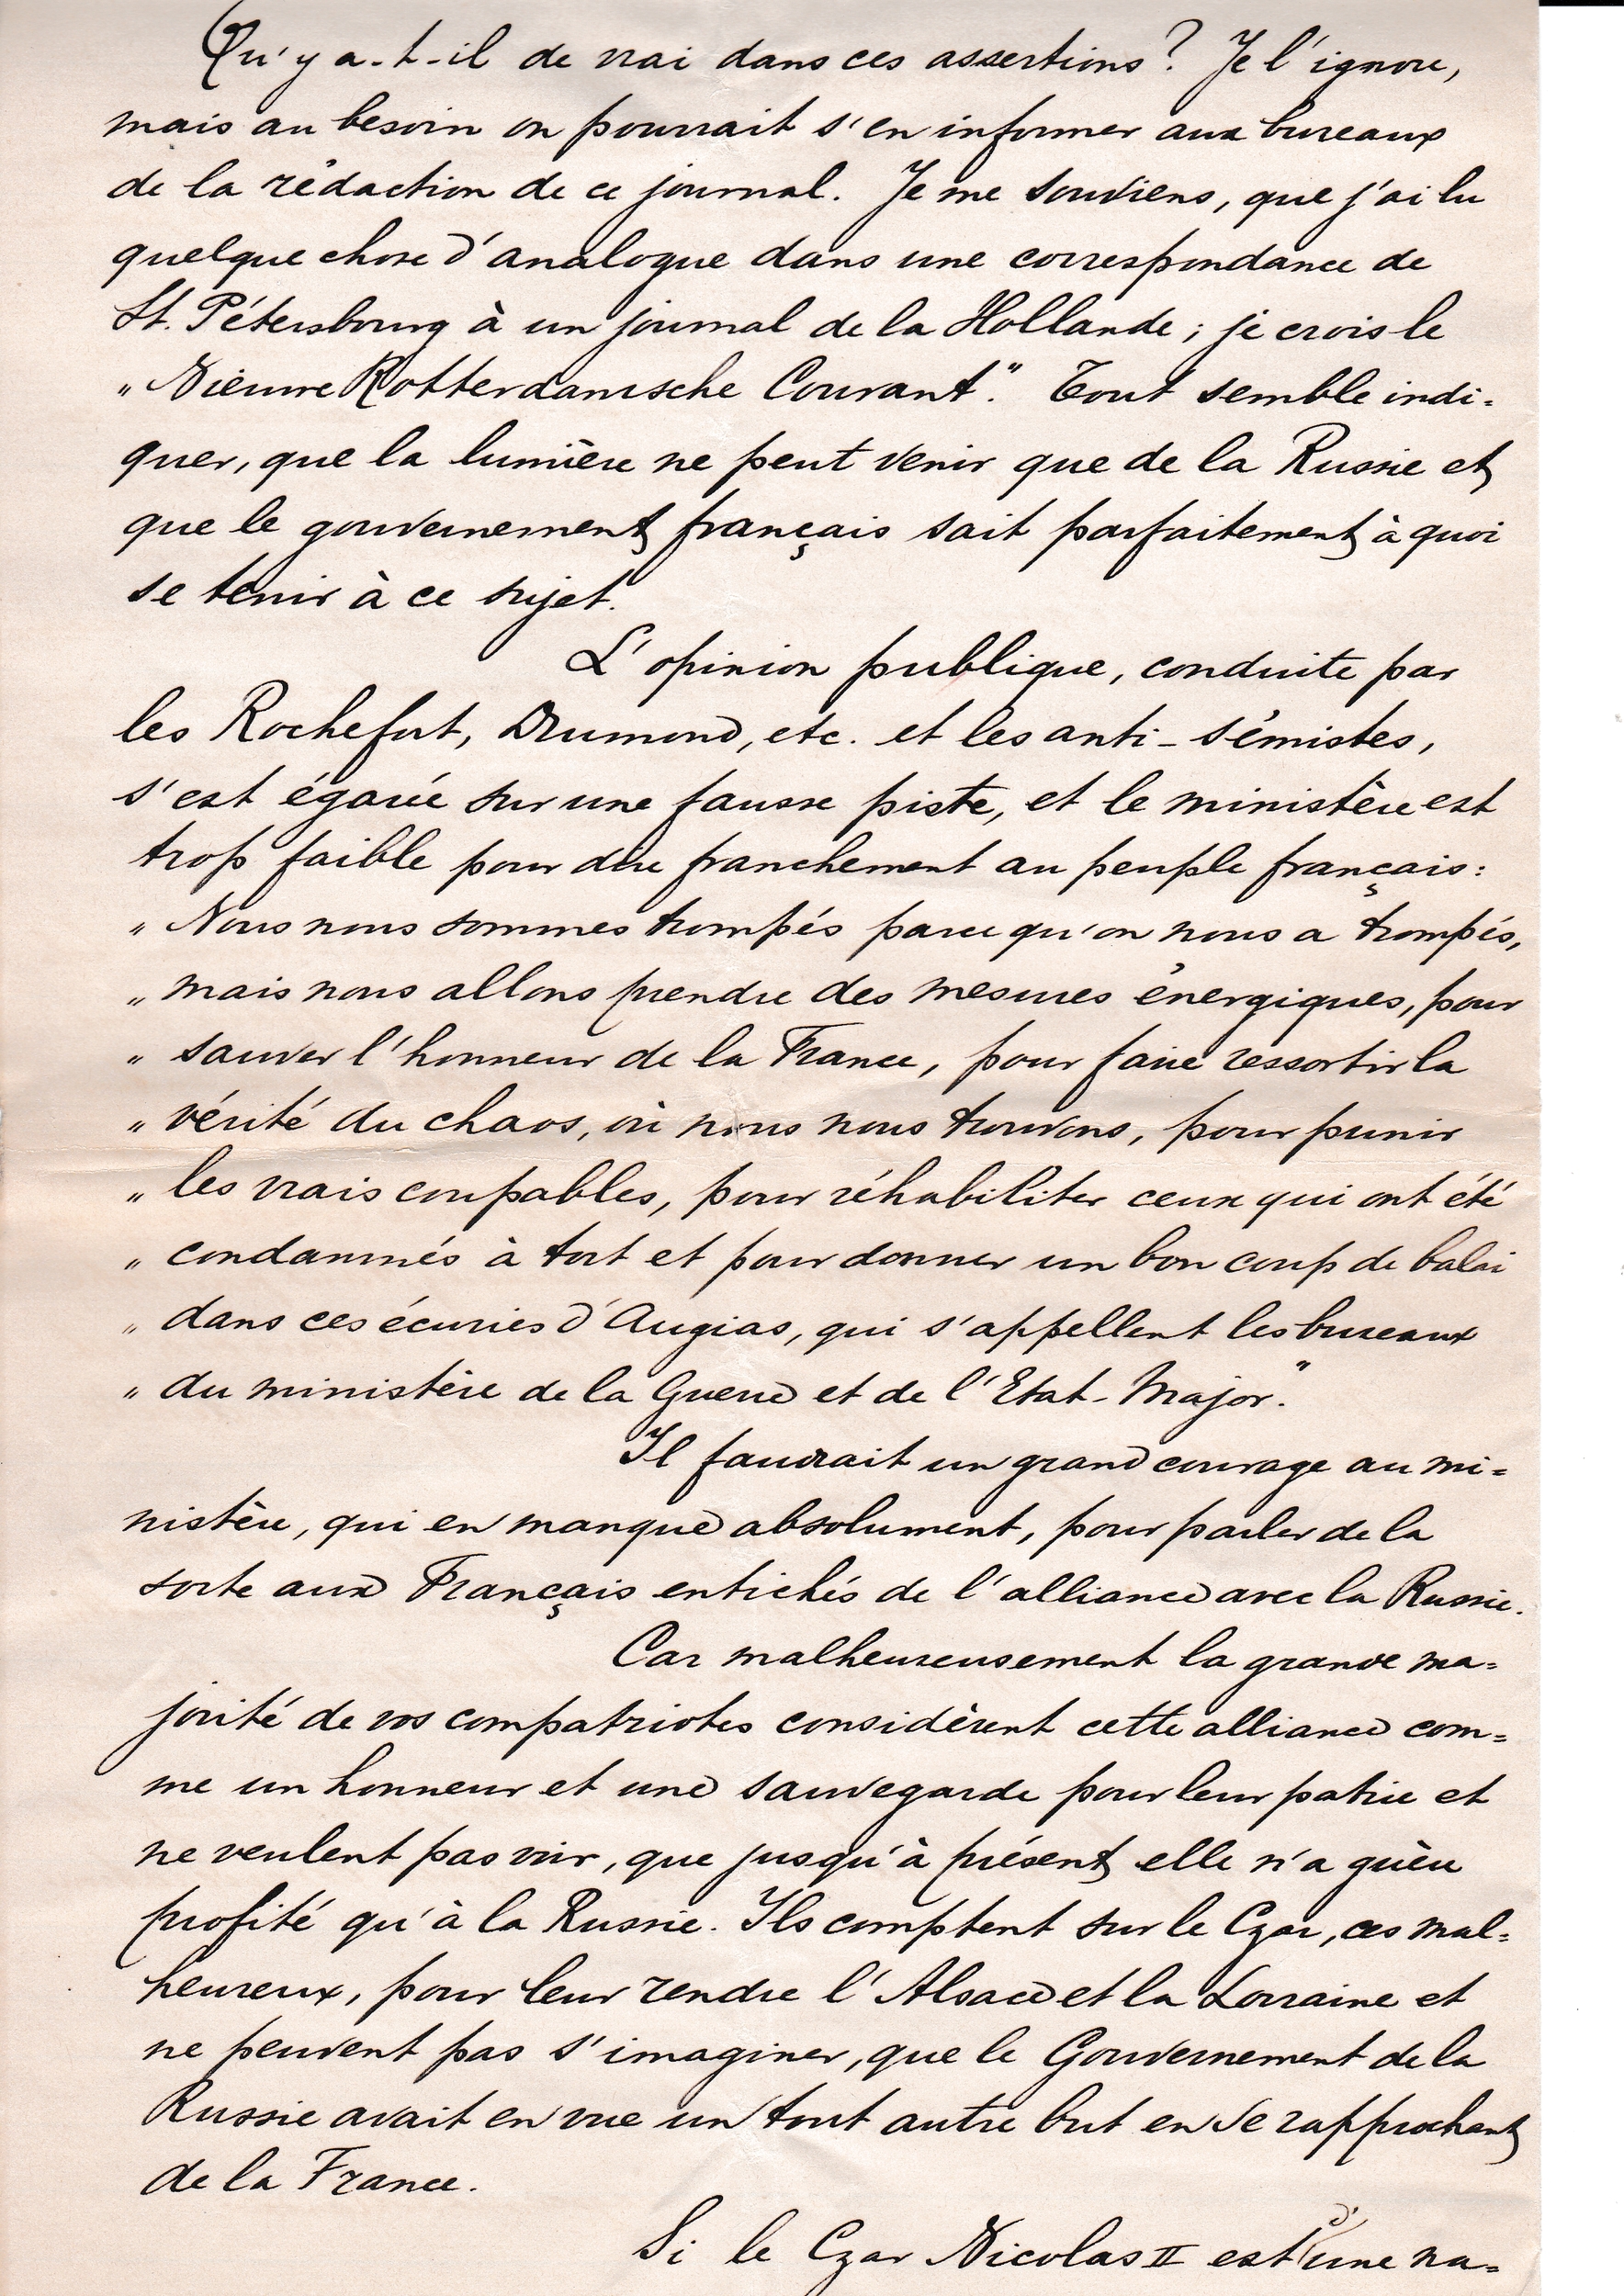 Qu'y a-t-il de vrai dans ces assertions? Je l'ignore,
mais au besoin on pourrait s'en informer aux bureaux
de la rédaction de ce journal. Je me souviens, que j'ai lu
quelque chose d'analogue dans une correspondance de
St. Pétersbourg à un journal de la Hollande; je crois le
„Nieuwe Rotterdamsche Courant". Tout semble indi=
quer, que la lumière ne peut venir que de la Russie et
que le gouvernement français sait parfaitement à quoi
se tenir à ce sujet.
L'opinion publique, conduite par
les Rochefort, Drumond, etc. et les anti-sémistes,
s'est égarée sur une fausse piste, et le ministère est
trop faible pour dire franchement au peuple français:
„Nous nous sommes trompés parce qu'on nous a trompés,
„mais nous allons prendre des mesures énergiques, pour
„sauver l'honneur de la France, pour faire ressortir la
„vérité du chaos, où nous nous trouvons, pour punir
„les vrais coupables, pour réhabiliter ceux qui ont été
„condamnés à tort et pour donner un bon coup de balai
„dans ces écuries d'Augias, qui s'appellent les bureaux
„du ministère de la Guerre et de l'Etat-Major."
Il faudrait un grand courage au mi=
nistère, qui en manque absolument, pour parler de la
sorte aux Français entichés de l'alliance avec la Russie.
Car malheureusement la grande ma=
jorité de vos compatriotes considèrent cette alliance com=
me un honneur et une sauvegarde pour leur patrie et
ne veulent pas voir, que jusqu'à présent elle n'a guère
profité qu'à la Russie. Ils comptent sur le Czar, ces mal=
heureux, pour leur rendre l'Alsace et la Lorraine et
ne peuvent pas s'imaginer, que le Gouvernement de la
Russie avait en vue un tout autre but en se rapprochant
de la France.
Si le Czar Nicolas II est d'une na=